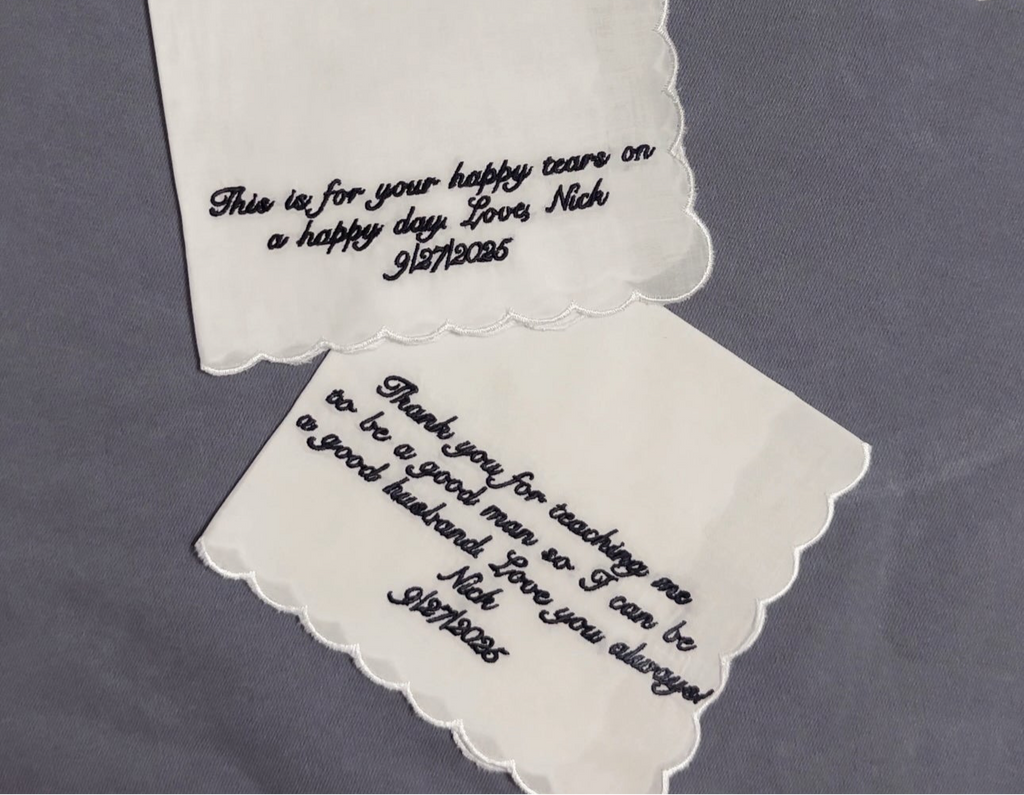 This is for your happy tears on
a happy day. Love, Nick
9/27/2025
Thank you for teaching me
to be a good man so I can be
a good husband. Love you always!
Nick
9/27/2025